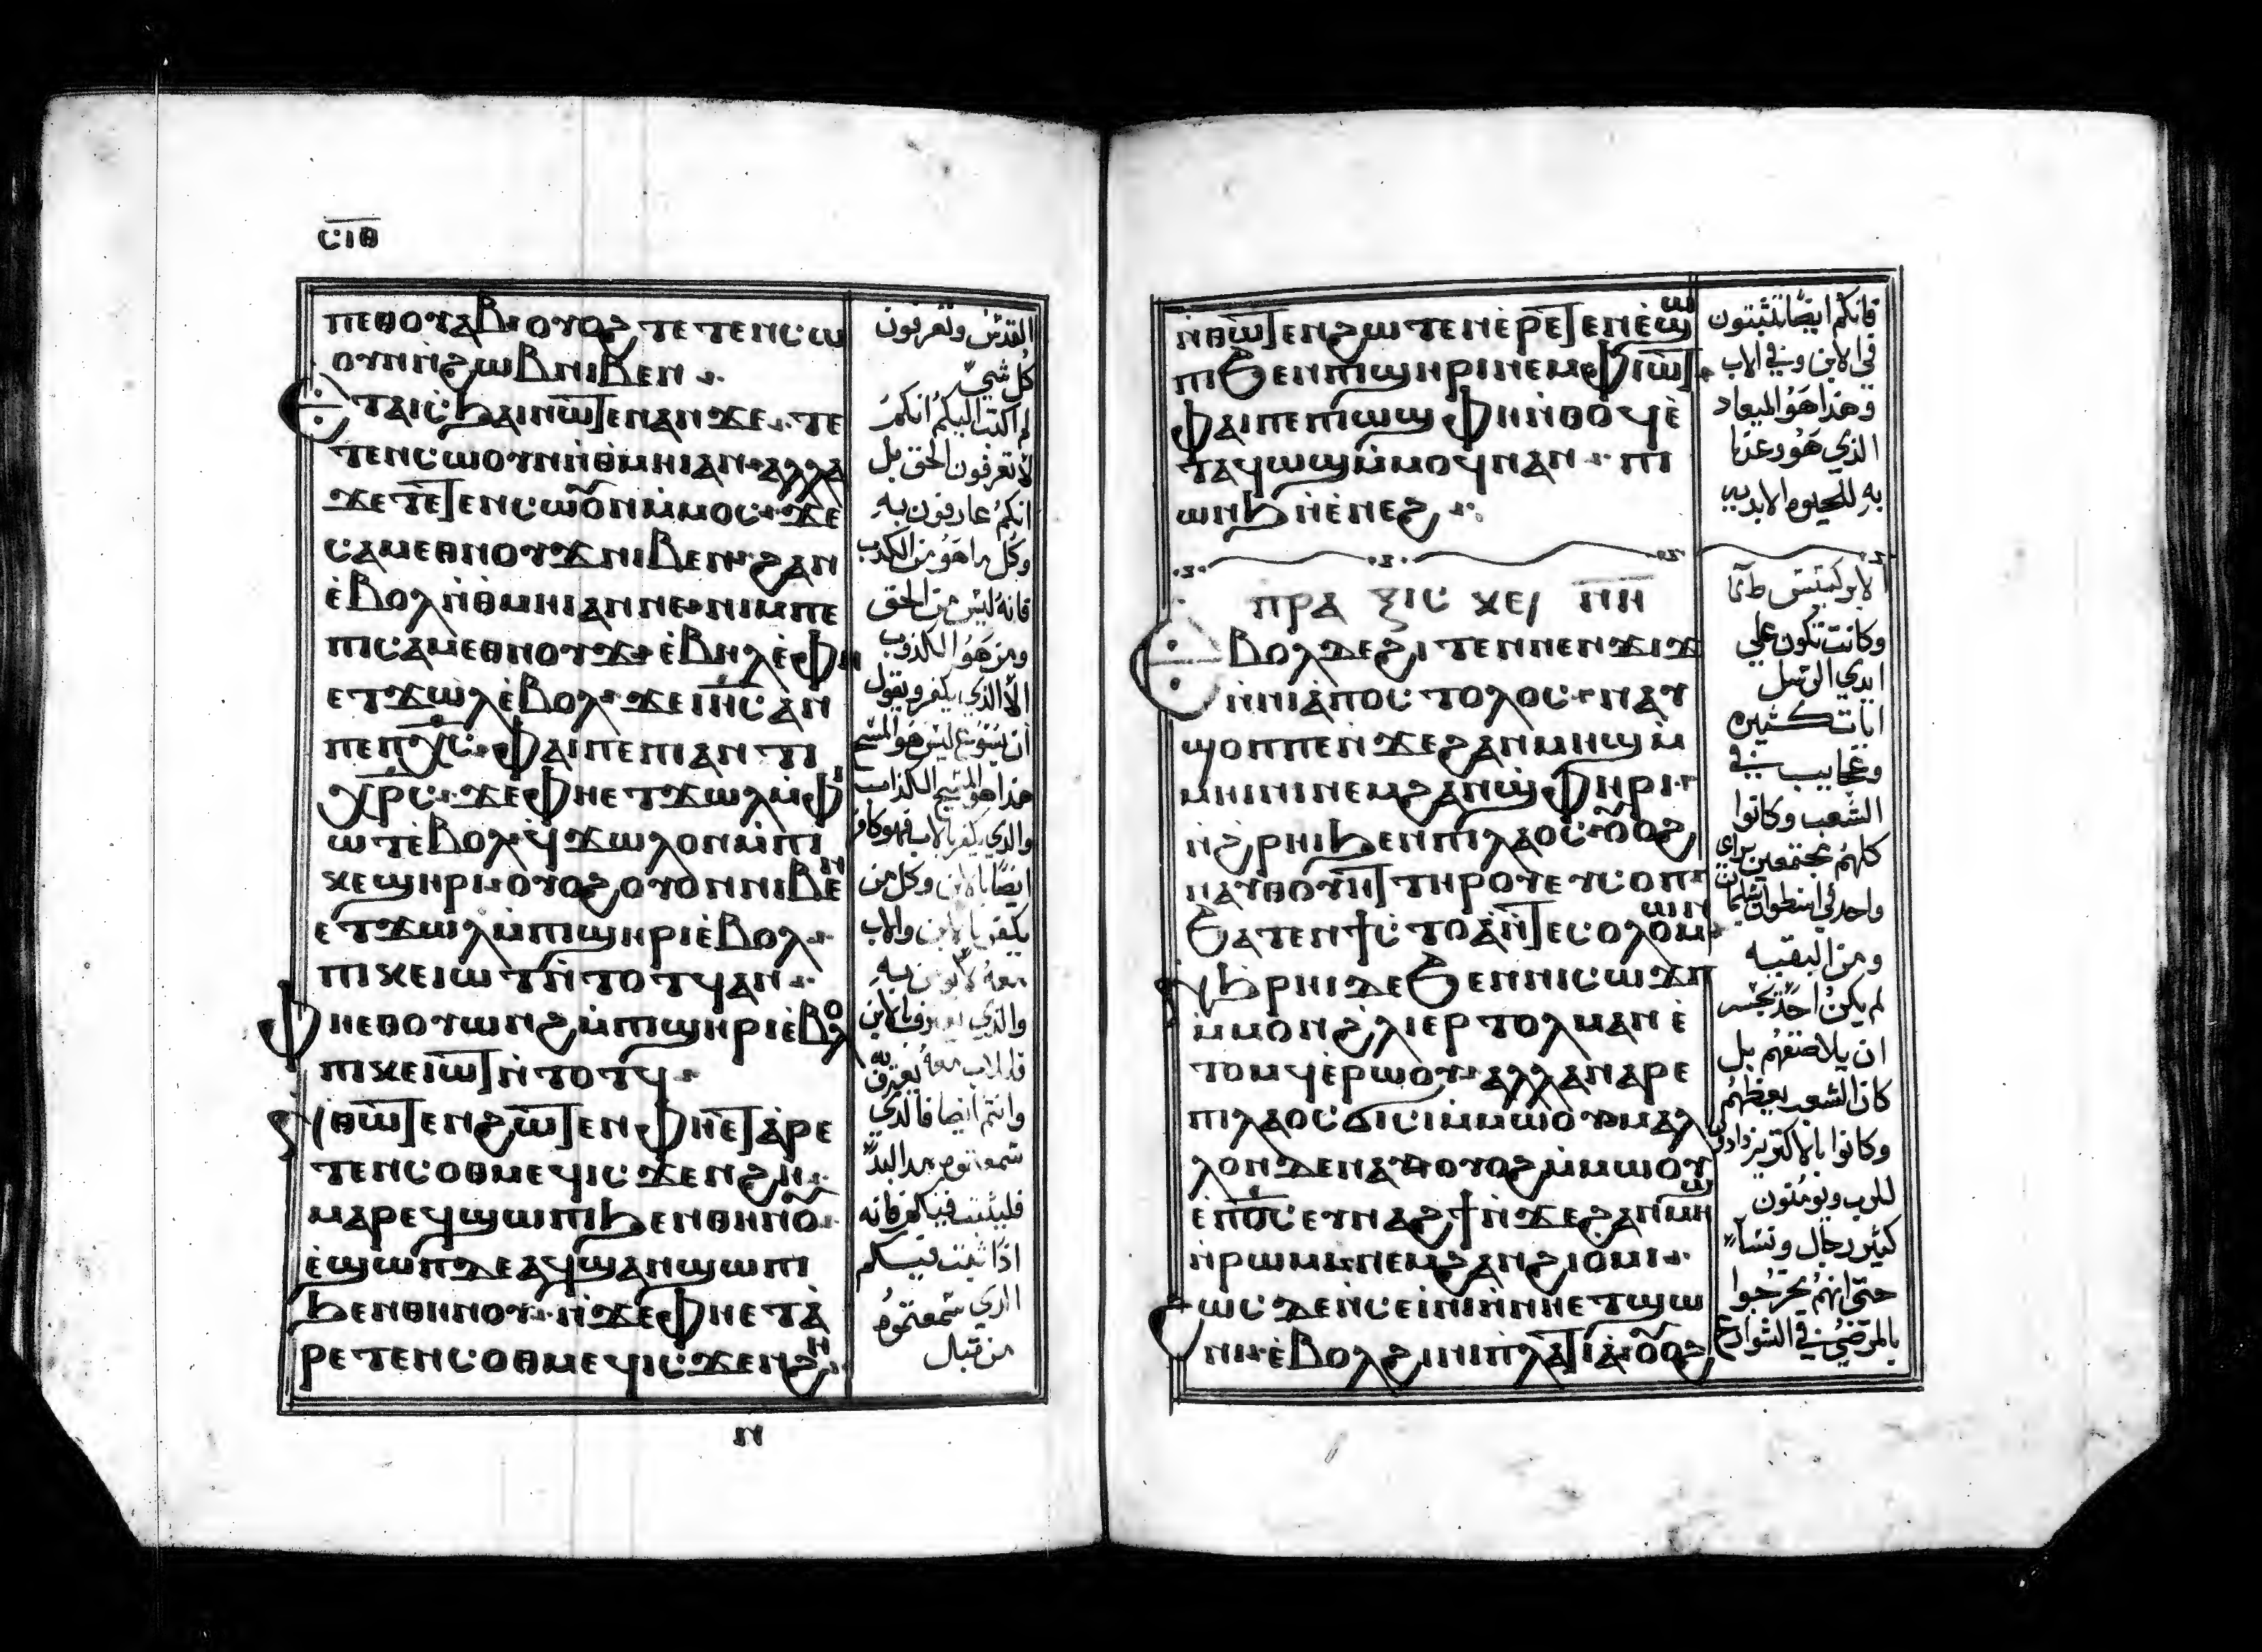 ⲥⲓⲑ
ⲡⲉⲑⲟⲩⲁⲃ ⲟⲩⲟϩ ⲧⲉⲧⲉⲛⲥⲱ
ⲟⲩⲛ ⲛ̀ϩⲱⲃ ⲛⲓⲃⲉⲛ
ⲉⲧⲁⲓⲥϧⲁⲓ ⲛⲱⲧⲉⲛ ⲁⲛ ϫⲉ ⲧⲉ
ⲧⲉⲛⲥⲱⲟⲩⲛ ⲛ̀ⲑⲙⲏⲓ ⲁⲛ ⲁⲗⲗⲁ
ϫⲉ ⲧⲉⲧⲉⲛⲥⲱⲟⲩⲛ ⲙ̀ⲙⲟⲥ ϫⲉ
ⲥⲁⲙⲉⲑⲛⲟⲩϫ ⲛⲓⲃⲉⲛ ϩⲁⲛ
ⲉ̀ⲃⲟⲗ ⲛ̀ⲑⲙⲏⲓ ⲁⲛ ⲛⲉ ⲛⲓⲙ ⲡⲉ
ⲡⲓⲥⲁⲙⲉⲑⲛⲟⲩϫ ⲉ̀ⲃⲏⲗ ⲉ̀ⲫⲏ
ⲉⲧϫⲱⲗ ⲉ̀ⲃⲟⲗ ϫⲉ ⲓⲏ̅ⲥ ⲁⲛ
ⲡⲉ ⲡⲭ̅ⲥ ⲫⲁⲓ ⲡⲉ ⲡⲓⲁⲛⲧⲓ
ⲭⲣ̅ⲥ ϫⲉ ⲫⲏ ⲉⲧϫⲱⲗ ⲙ̀ⲫⲓ
ⲱⲧ ⲉ̀ⲃⲟⲗ ϥ̀ϫⲱⲗ ⲟⲛ ⲙ̀ⲡⲓ
ⲕⲉϣⲏⲣⲓ ⲟⲩⲟϩ ⲟⲩⲟⲛ ⲛⲓⲃⲉⲛ
ⲉⲧϫⲱⲗ ⲙ̀ⲡⲓϣⲏⲣⲓ ⲉ̀ⲃⲟⲗ
ⲡⲓⲕⲉⲓⲱⲧ ⲛ̀ⲧⲟⲧϥ ⲁⲛ
ⲫⲏ ⲉⲑⲟⲩⲱⲛϩ ⲙ̀ⲡⲓϣⲏⲣⲓ ⲉ̀ⲃⲟⲗ
ⲡⲓⲕⲉⲓⲱⲧ ⲛ̀ⲧⲟⲧϥ
ⲛ̀ⲑⲱⲧⲉⲛ ϩⲱⲧⲉⲛ ⲫⲏ ⲉⲧⲁ̀ⲣⲉ
ⲧⲉⲛⲥⲟⲑⲙⲉϥ ⲓⲥϫⲉⲛ ϩⲏ
ⲙⲁⲣⲉϥϣⲱⲡⲓ ϧⲉⲛ ⲑⲏⲛⲟⲩ
ⲉ̀ϣⲱⲡ ⲇⲉ ⲁϥϣⲁⲛϣⲱⲡⲓ
ϧⲉⲛ ⲑⲏⲛⲟⲩ ⲛ̀ϫⲉ ⲫⲏ ⲉⲧⲁ̀
ⲣⲉⲧⲉⲛⲥⲟⲑⲙⲉϥ ⲓⲥϫⲉⲛ ϩⲏ
القدس وتعرفون
كل شي
لم اكتب اليكم انكم
لا تعرفون الحق بل
انكم عارفون به
وكل ما هو من الكدب
فانه ليس من الحق
ومن هو الكدوب
الا الذي يكفر ويقول
ان يسوع ليس هو المسيح
هذا هو المسيح الكداب
والذي يكفر بالاب فهو كافر
ايضا بالابن وكل من
يكفر بالابن والاب
معه لا يومن به
والذي يعترف بالابن
فالاب معه يعترف به
وانتم ايضا فالذي
سمعتموه من البدء
فليثبت فيكم فانه
اذا ثبت فيكم
الذي سمعتموه
من قبل
ⲛⲑⲱⲧⲉⲛ ϩⲱ ⲧⲉⲛⲉ̀ⲣⲉⲧⲉⲛⲉ̀ϣⲱ
ⲡⲓ ϧⲉⲛ ⲡⲓϣⲏⲣⲓ ⲛⲉⲙ ⲫⲓⲱⲧ
ⲫⲁⲓ ⲡⲉ ⲡⲓⲱϣ ⲫⲏ ⲛ̀ⲑⲟϥ ⲉ̀
ⲧⲁϥⲱϣ ⲙ̀ⲙⲟϥ ⲛⲁⲛ ⲡⲓ
ⲱⲛϧ ⲛ̀ⲉ̀ⲛⲉϩ
ⲡⲣⲁⲝⲓⲥ ⲕⲉ ⲛⲏ
ⲉⲃⲟⲗ ⲇⲉ ϩⲓⲧⲉⲛ ⲛⲉⲛϫⲓϫ
ⲛ̀ⲛⲓⲁ̀ⲡⲟⲥⲧⲟⲗⲟⲥ ⲛⲁⲩ
ϣⲟⲡ ⲡⲉ ⲛ̀ϫⲉ ϩⲁⲛⲙⲏϣ ⲙ̀
ⲙⲏⲓⲛⲓ ⲛⲉⲙ ϩⲁⲛϣ̀ⲫⲏⲣⲓ
ⲛ̀ϩ̀ⲣⲏⲓ ϧⲉⲛ ⲡⲓⲗⲁⲟⲥ ⲟⲩⲟϩ
ⲛⲁⲩⲑⲟⲩⲏⲧ ⲧⲏⲣⲟⲩ ⲉⲩⲥⲟⲡ
ϧⲁⲧⲉⲛ ϯⲥⲧⲟⲁ̀ ⲛ̀ⲧⲉ ⲥⲟⲗⲟⲙⲱⲛ
ⲛ̀ϧⲣⲏⲓ ⲇⲉ ϧⲉⲛ ⲛⲓⲥⲱϫⲡ
ⲙ̀ⲙⲟⲛ ϩ̀ⲗⲓ ⲉⲣⲧⲟⲗⲙⲁⲛ ⲉ̀
ⲧⲟⲙϥ ⲉ̀ⲣⲱⲟⲩ ⲁⲗⲗⲁ ⲛⲁⲣⲉ
ⲡⲓⲗⲁⲟⲥ ϭⲓⲥⲓ ⲙ̀ⲙⲱⲟⲩ ⲙⲁⲗ
ⲗⲟⲛ ⲇⲉ ⲛⲁⲩⲟⲩⲟϩ ⲙ̀ⲙⲱⲟⲩ
ⲉ̀ⲡ⳪ ⲉⲩⲛⲁϩϯ ⲛ̀ϫⲉ ϩⲁⲛⲙⲏϣ
ⲛ̀ⲣⲱⲙⲓ ⲛⲉⲙ ϩⲁⲛϩⲓⲟⲙⲓ
ϩⲱⲥⲇⲉ ⲛ̀ⲥⲉⲓ̀ⲛⲓ ⲛ̀ⲛⲏ ⲉⲧϣⲱ
ⲛⲓ ⲉ̀ⲃⲟⲗ ϩⲓ ⲛⲓⲡⲗⲁⲧⲓⲁ̀ ⲟⲩⲟϩ
فانكم ايضا تثبتون
في الابن وفي الاب
وهذا هو الميعاد
الذي هو وعدنا
به للحيوه الابديه
وكانت تكون علي
ايدي الرسل
ايات كثيره
وعجايب في
الشعب وكانوا
كلهم مجتمعين براي
واحد في اسطوان سليمان
ومن البقيه
لم يكن احد يجسر
ان يلاصقهم بل
كان الشعب يعظمهم
وكانوا بالاكتر يزدادون
للرب ويومنون
كثير رجال ونساء
حتي انهم يخرجوا
بالمرضي في الشوارع